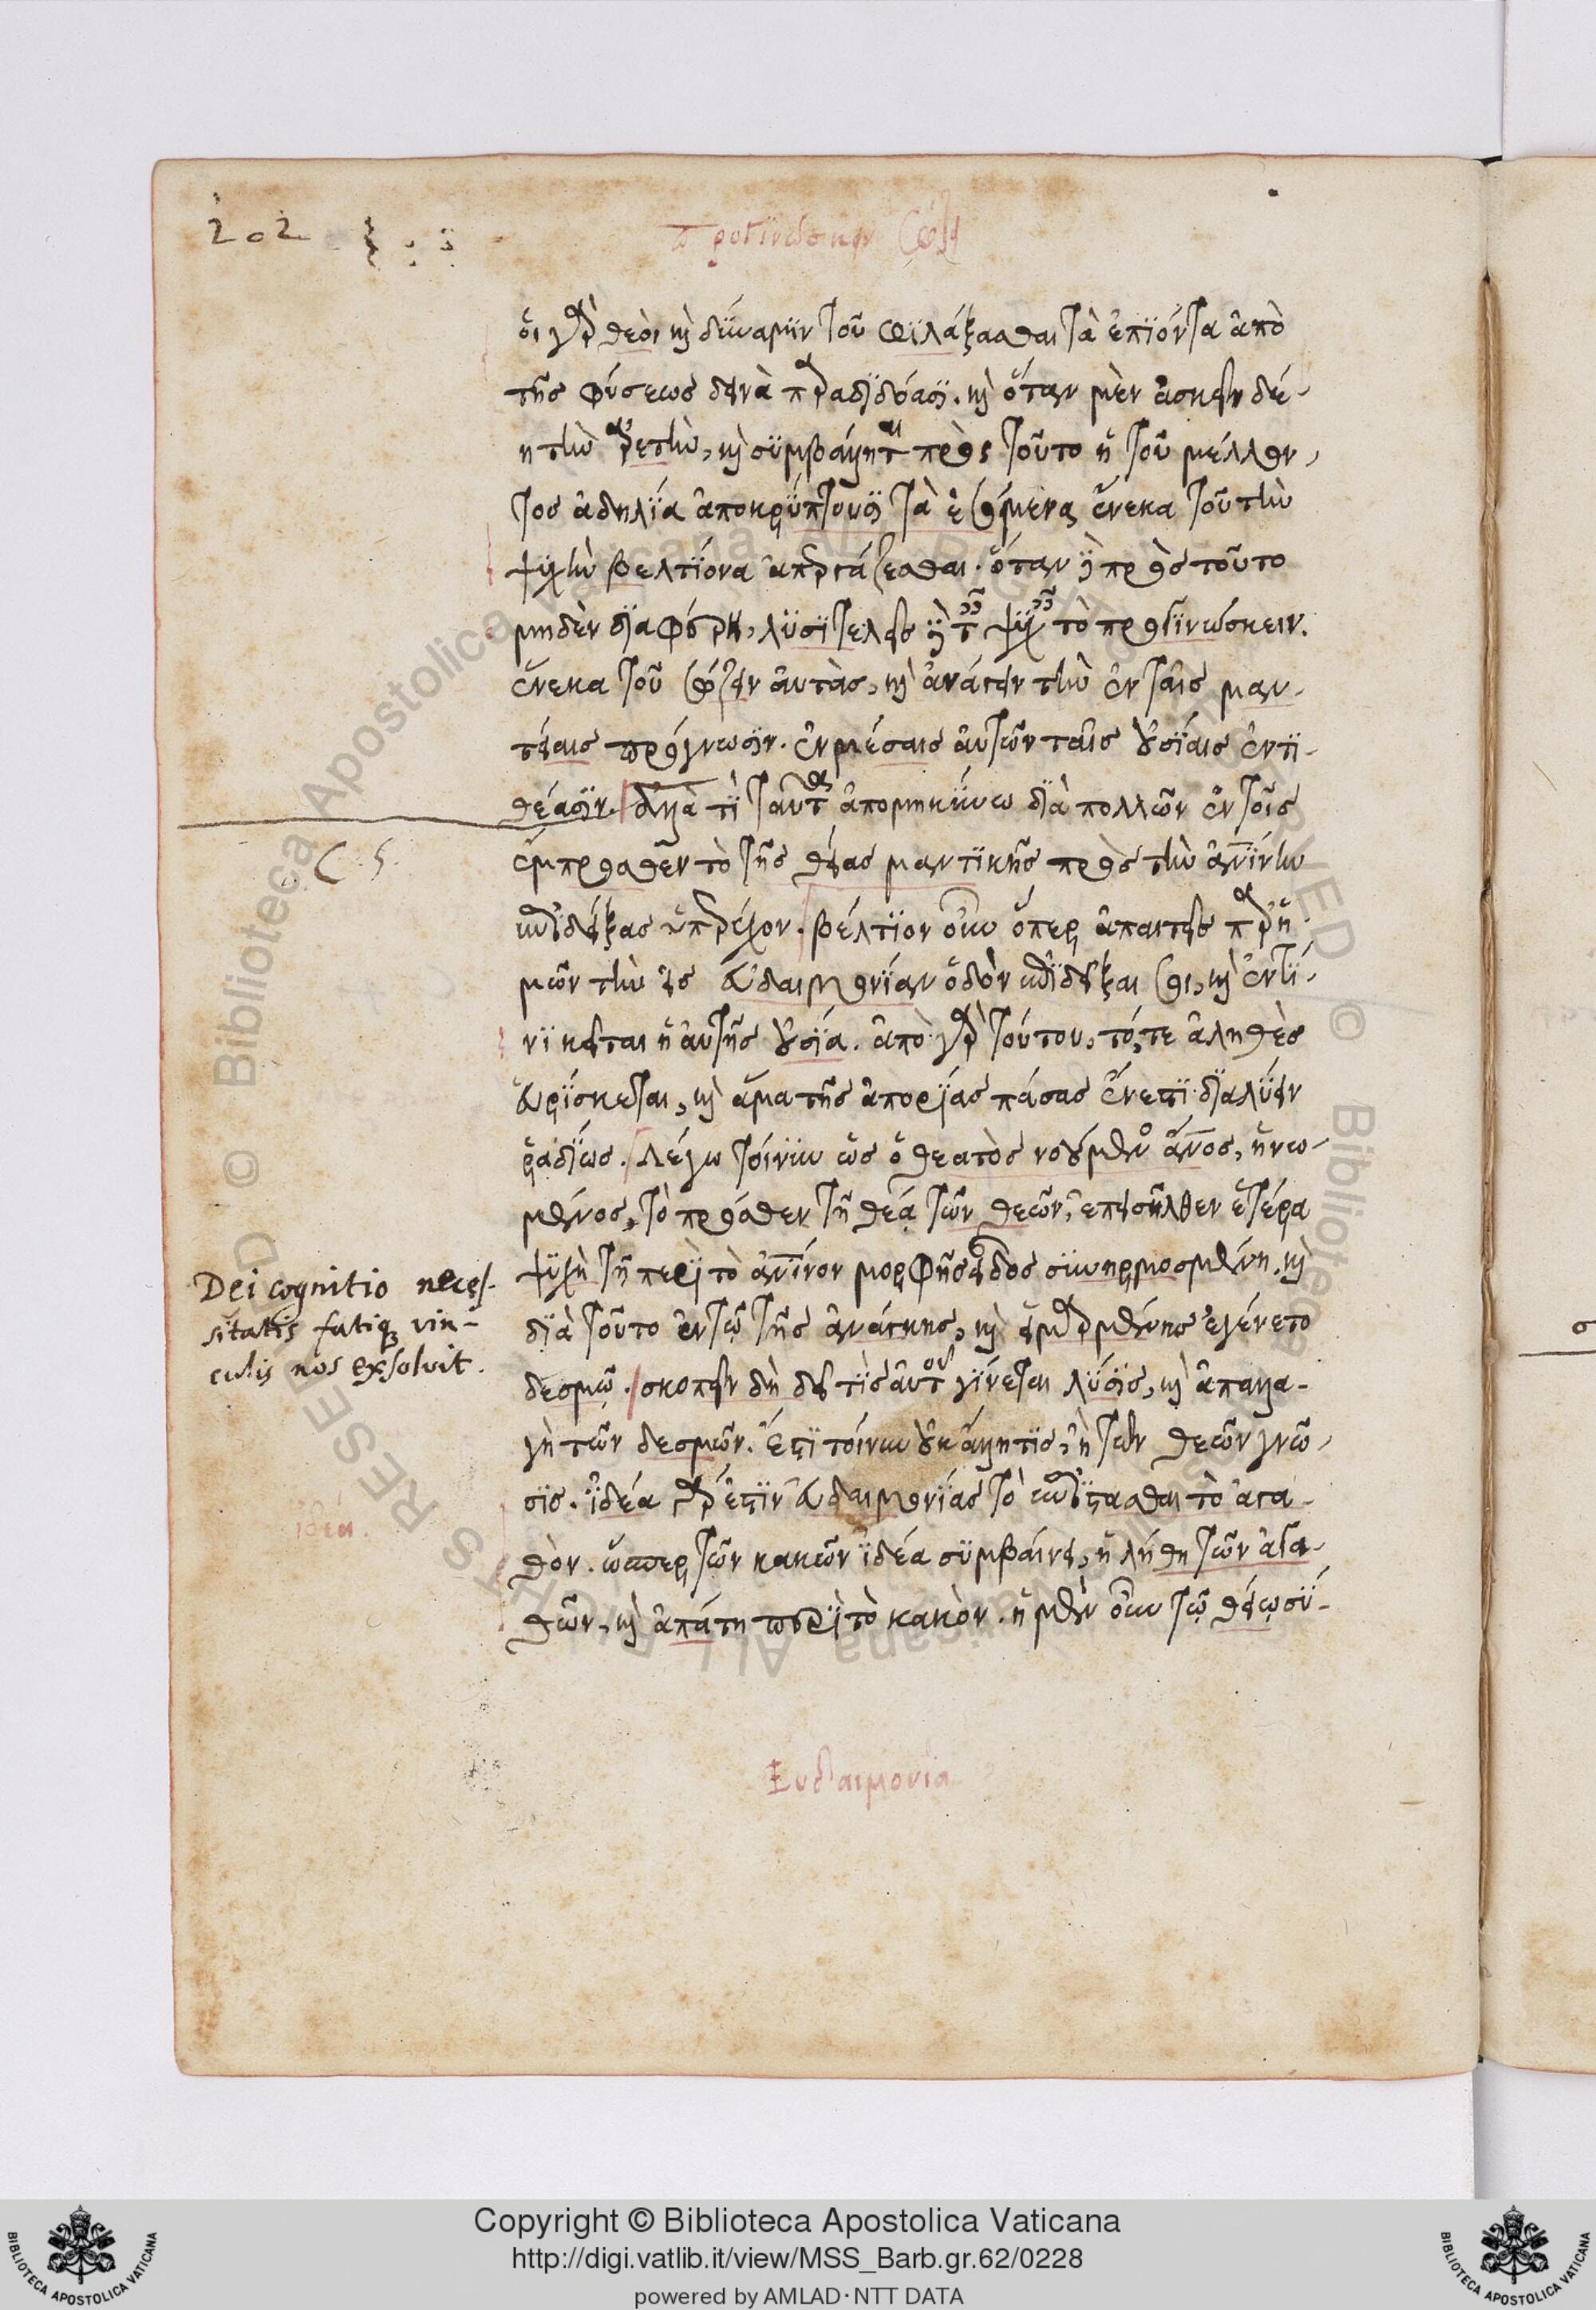 202
προγινώσκειν
οἱ γὰρ θεοὶ καὶ δύναμιν τοῦ φυλάξασθαι τὰ ἐπιόντα ἀπὸ
τῆς φύσεως δεινὰ παραδιδόασι. καὶ ὅταν μὲν ἀσκεῖν δέ-
η τὴν ἀρετὴν, καὶ συμβάλληται πρὸς τοῦτο ἡ τοῦ μέλλον-
τος ἀδηλία ἀποκρύπτουσι τὰ ἐσόμενα ἕνεκα τοῦ τὴν
ψυχὴν βελτίονα ἀπεργάζεσθαι. ὅταν δὲ πρὸς τοῦτο
μηδὲν διαφέρῃ, λυσιτελεῖ δὲ ταῖς ψυχαῖς τὸ προγινώσκειν.
ἕνεκα τοῦ σῴζειν αὐτὰς, καὶ ἀνάγειν τὴν ἐν ταῖς μαν-
τείαις πρόγνωσιν. ἐν μέσαις αὐτῶν ταῖς οὐσίαις ἐντι-
θέασιν. ἀλλὰ τί ταῦτα ἀπομηκύνω διὰ πολλῶν ἐν τοῖς
ἔμπροσθεν τὸ τῆς θείας μαντικῆς πρὸς τὴν ἀνίνην
ἐπιδείξας ὑπερέχον. βέλτιον οὖν ὅπερ ἀπαιτεῖς παρ' ἡ-
μῶν τὴν εἰς εὐδαιμονίαν ὁδὸν ἐπιδεῖξαι σοι, καὶ ἐν τί-
νι κεῖται ἡ αὐτῆς οὐσία. ἀπὸ γὰρ τούτου, τό, τε ἀληθὲς
εὑρίσκεται, καὶ ἅμα τῆς ἀπορίας πάσας ἔνεστι διαλύειν
ῥαδίως. λέγω τοίνυν ὡς ὁ θεατὸς νοούμενος ἄνος, ἡνω-
μένος, τὸ πρόσθεν τῇ θέᾳ τῶν θεῶν, ἐπεισῆλθεν ἑτέρα
ψυχὴ τῇ περὶ τὸ ἀνινον μορφῆς εἶδος συνηρμοσμένη. καὶ
διὰ τοῦτο ἐν τῷ τῆς ἀνάγκης, καὶ εἱμαρμένης ἐγένετο
δεσμῷ. σκοπεῖν δὴ δεῖ τὶς αὐτοῦ γίνεται λύσις, καὶ ἀπαλλα-
γὴ τῶν δεσμῶν. ἔστι τοίνυν οὐκ ἄλλη τις, ἢ τῶν θεῶν γνῶ-
σις. ἰδέα γάρ ἐστιν εὐδαιμονίας τὸ ἐπίστασθαι τὸ ἀγα-
θὸν. ὥσπερ τῶν κακῶν ἰδέα συμβαίνει, ἡ λήθη τῶν ἀγα-
θῶν, καὶ ἀπάτη περὶ τὸ κακὸν. ἡ μὲν οὖν τῷ θείῳ σύ-
C. 5.
Dei cognitio neces-
sitatis fatiq; vin-
culis nos exsolvit.
ἰδέα.
Ευδαιμονία
Copyright © Biblioteca Apostolica Vaticana
http://digi.vatlib.it/view/MSS_Barb.gr.62/0228
powered by AMLAD·NTT DATA